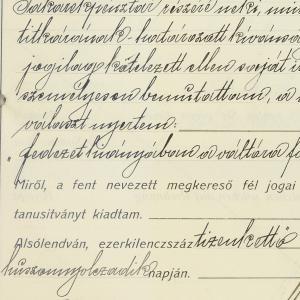 Takarékpénztár részére neki, mint
titkárának határozott kivánsá
jogilag kötelezett ellen saját
személyesen bemutattam, a
választ nyertem:
"fedezet hiányában a váltóra f
Miről, a fent nevezett megkereső fél jogai
tanusitványt kiadtam.
Alsólendván, ezerkilenczszáz tizenkettő
huszonnyolczadik napján.